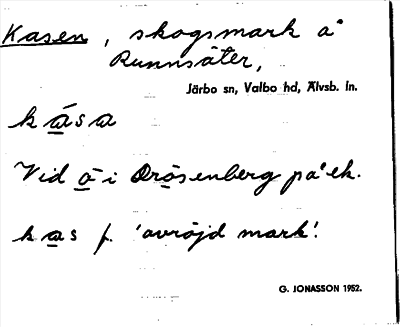 Kasen, skogsmark å
Runnsäter,
Järbo sn, Valbo hd, Älvsb. ln.
kása
Vid å i Dråsenberg på ek.
kas f. 'avröjd mark'.
G. JONASSON 1952.